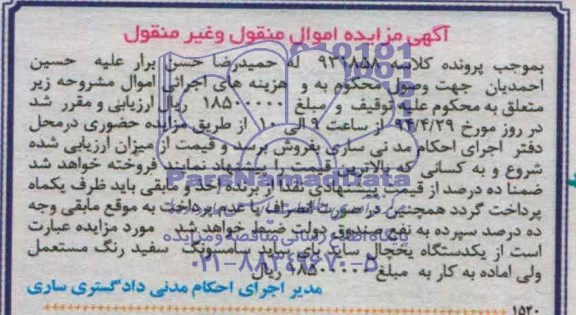 آگهی مزایده اموال منقول وغیر منقول
بموجب پرونده کلاسه ۹۳۱۸۵۸ له حمیدرضا حسن برار علیه حسین
احمدیان جهت وصول محکوم به و هزینه های اجرائی اموال مشروحه زیر
متعلق به محکوم علیه توقیف و مبلغ ۱۸۵۰۰۰۰۰ ریال ارزیابی و مقرر شد
در روز مورخ ۹۴/۴/۲۹ از ساعت ۹ الی ۱۰ از طریق مزایده حضوری درمحل
دفتر اجرای احکام مدنی ساری بفروش برسد و قیمت از میزان ارزیابی شده
شروع و به کسانی که بالاترین قیمت را پیشنهاد نمایند فروخته خواهد شد
ضمنا ده درصد از قیمت پیشنهادی نقدا از برنده اخذ و مابقی باید ظرف یکماه
پرداخت گردد همچنین در صورت انصراف یا عدم پرداخت به موقع مابقی وجه
ده درصد سپرده به نفع صندوق دولت ضبط خواهد شد مورد مزایده عبارت
است از یکدستگاه یخچال ساید بای ساید سامسونگ سفید رنگ مستعمل
ولی اماده به کار به مبلغ ۱۸۵۰۰۰۰۰ ریال
مدیر اجرای احکام مدنی دادگستری ساری
۱۵۲۰
ParsNamadData
پایگاه اطلاع رسانی مناقصه و مزایده
۰۲۱-۸۸۳۴۹۶۷۰-۵